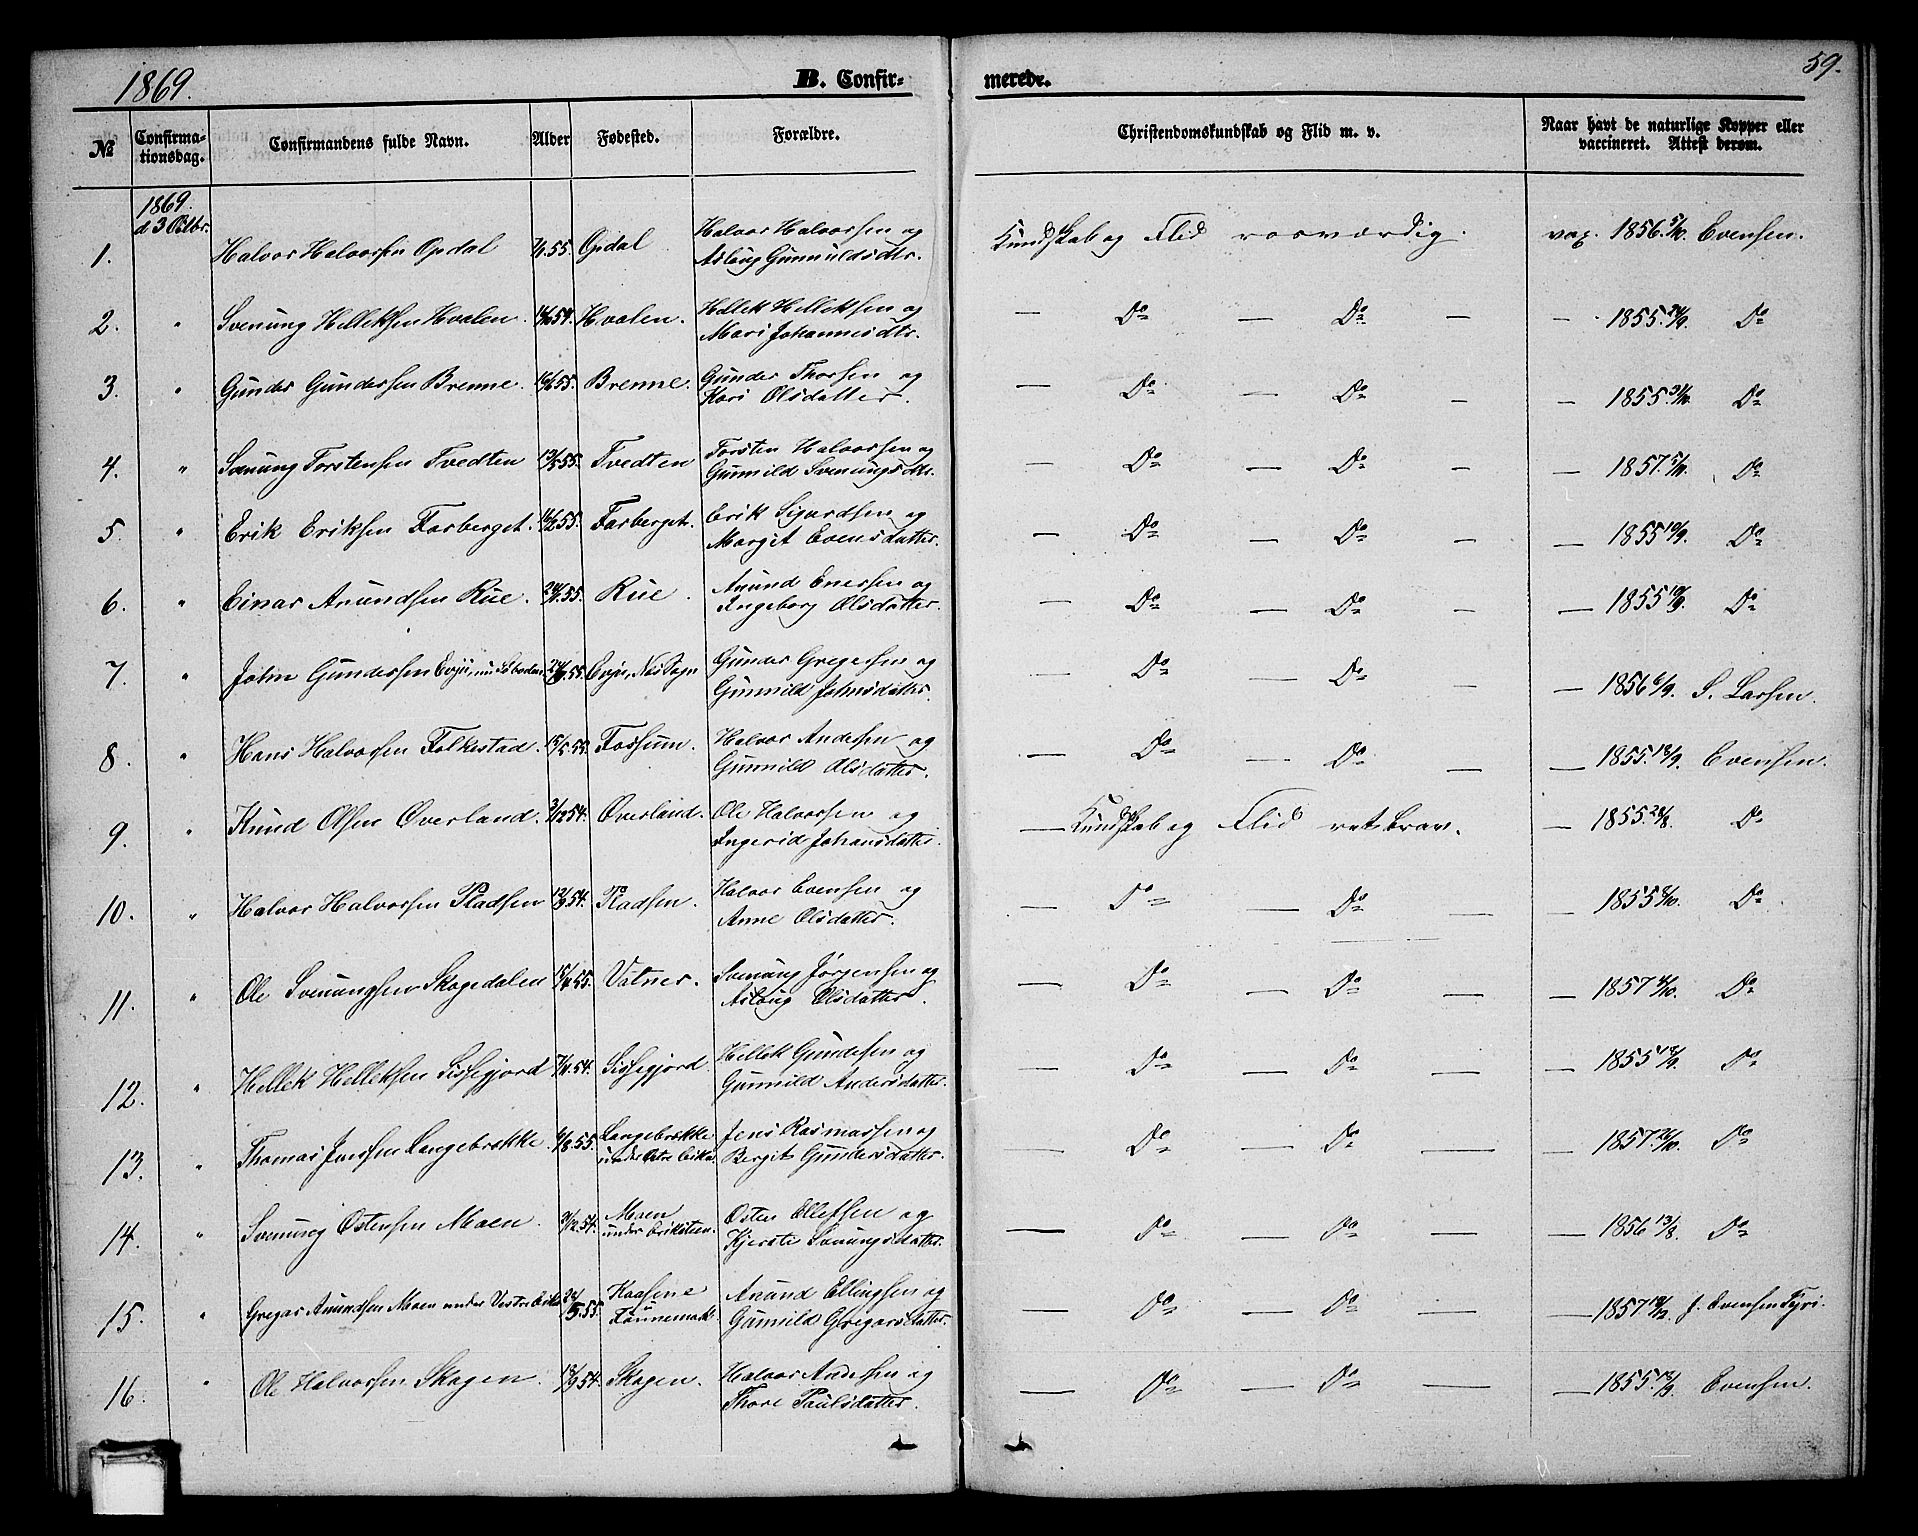 1869.
B. Confir-
merede.
59.
№
Confirma-
tionsdag.
Confirmandens fulde Navn.
Alder
Fødested.
Forældre.
Christendomskundskab og Flid m. v.
Naar havt de naturlige Kopper eller
vaccineret. Attest derom.
1869.
d 3 Octbr.
1. Halvor Halvorsen Opdal 55 Opdal Halvor Halvorsen og
Aslaug Gunnuldsdtr. Kundskab og Flid rosværdig. vax. 1856 5/10 Evensen.
2. " Svenung Helleksen Hvalen. 54. Hvalen. Hellek Helleksen og
Mari Johannesdtr. — Do — Do — — 1855. 24/9 Do
3. " Gunder Gundersen Brenne. 55. Brenne. Gunder Thorsen og
Kari Olsdatter. — Do — Do — — 1855. 31/10. Do
4. " Svenung Torstensen Tvedten 13/5 55. Tvedten Torsten Halvorsen og
Gunnild Svenungsdtr. — Do — Do — — 1857. 5/10. Do
5. " Erik Eriksen Farberget. 16/2 55. Farberget. Erik Sigurdsen og
Margit Evensdatter. — Do — Do — — 1855 10/9. Do
6. " Einar Anundsen Rue. 55. Rue. Anund Enersen og
Ingeborg Olsdatter. — Do — Do — — 1855 10/9. Do
7. " John Gundersen Evju, nu 55. Evju, Nes Sogn Gunder Gregersen og
Gunnild Johnsdatter. — Do — Do — — 1856 6/9. S. Larsen.
8. " Hans Halvorsen Folkestad. 15/5 55. Fossum. Halvor Andersen og
Gunnild Olsdatter. — Do — Do — — 1855. 18/9. Evensen.
9. " Knud Olsen Øverland. 3/12 54. Øverland. Ole Halvorsen og
Ingerid Johansdatter. — Kundskab og Flid ret brav. — 1855. 28/8. Do
10. " Halvor Halvorsen Pladsen 12/9 54. Pladsen. Halvor Evensen og
Anne Olsdatter. — Do — Do — — 1855 8/10. Do
11. " Ole Svenungsen Skogedalen 15/4 55. Vatner. Svenung Jørgensen og
Aslaug Olsdatter. — Do — Do — — 1857 4/10. Do
12. " Hellek Helleksen Sissegjord 54. Sissegjord. Hellek Gundersen og
Gunnild Andersdatter. — Do — Do — — 1855 18/9. Do
13. " Thomas Jensen Langebrekke. 6/8 55. Langebrekke
under Østre Eika Jens Rasmussen og
Bergit Gundersdatter. — Do — Do — — 1857. 26/10. Do
14. " Svenung Østensen Moen. 54. Moen
under Erikstein. Østen Ellefsen og
Kjerste Svenungsdatter. — Do — Do — — 1856 13/8. Do
15. " Gregar Anundsen Moen under Vestre Eika 24/5. 55. Kaasene
Fønnemark Anund Ellingsen og
Gunnild Gregarsdatter. — Do — Do — — 1857 18/12. J. Evensen Tyri.
16. " Ole Halvorsen Skogen. 18/9 54. Skogen. Halvor Andersen og
Thore Paulsdatter. — Do — Do — — 1855. 18/9. Evensen.